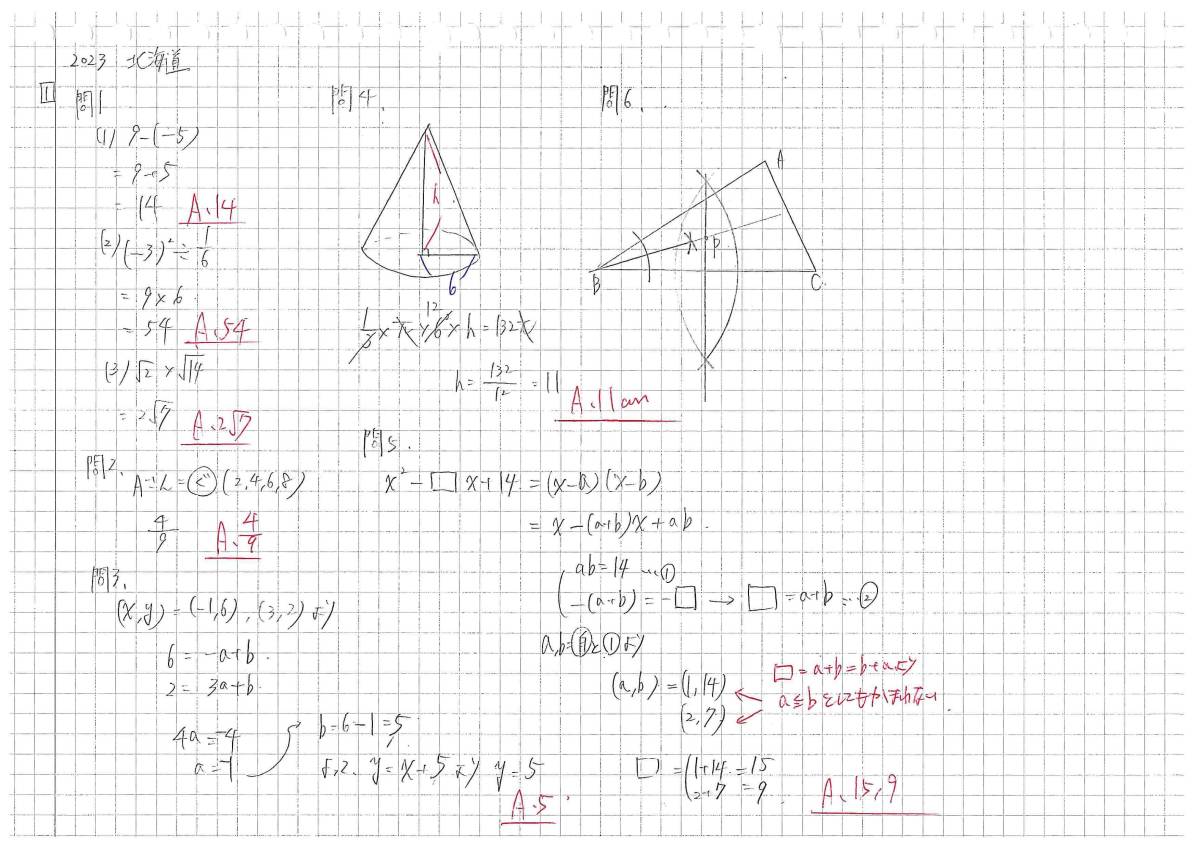 2023 北海道
1
問1
(1) 9-(-5)
= 9+5
= 14 A.14
(2) (-3)² ÷ 1/6
= 9×6
= 54 A.54
(3) √2 × √14
= 2√7 A.2√7
問2.
(2,4,6,8)
4/9 A.4/9
問3.
(x,y) = (-1,6), (3,2) より
6 = -a+b.
2 = 3a+b.
4a = -4
a = -1
b = 6-1 = 5
よって. y = x+5 より y = 5
A.5
問4.
h
6
1/3 × π × 6² × h = 132π
12
h = 132/12 = 11
A.11cm
問5.
x² - □ x + 14 = (x-a)(x-b)
= x-(a+b)x+ab.
ab = 14 …①
-(a+b) = -□ → □ = a+b …②
a,b = 自 と ① より
(a,b) = (1,14)
(2,7)
□ = a+b = b+a より
a≦b としてもかまわない
□ = 1+14 = 15
2+7 = 9.
A.15,9
問6.
A
B
C
P